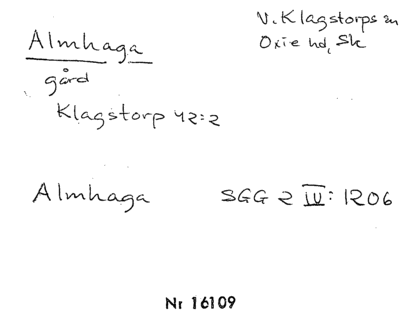 Almhaga
V. Klagstorps sn
Oxie hd, Sk
gård
Klagstorp 42:2
Almhaga SGG 2 IV: 1206
Nr 16109